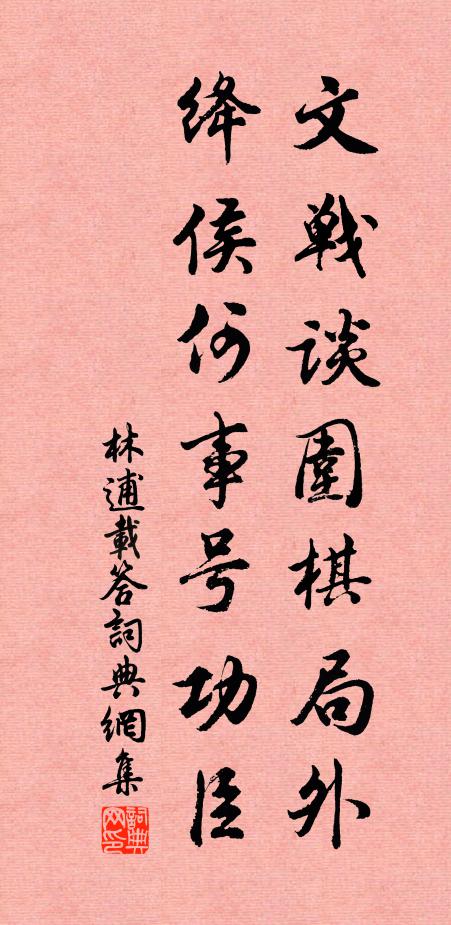 文戦谈圍棋局外
绛侯何事号功臣
林逋載答詞典網集
詞典网印